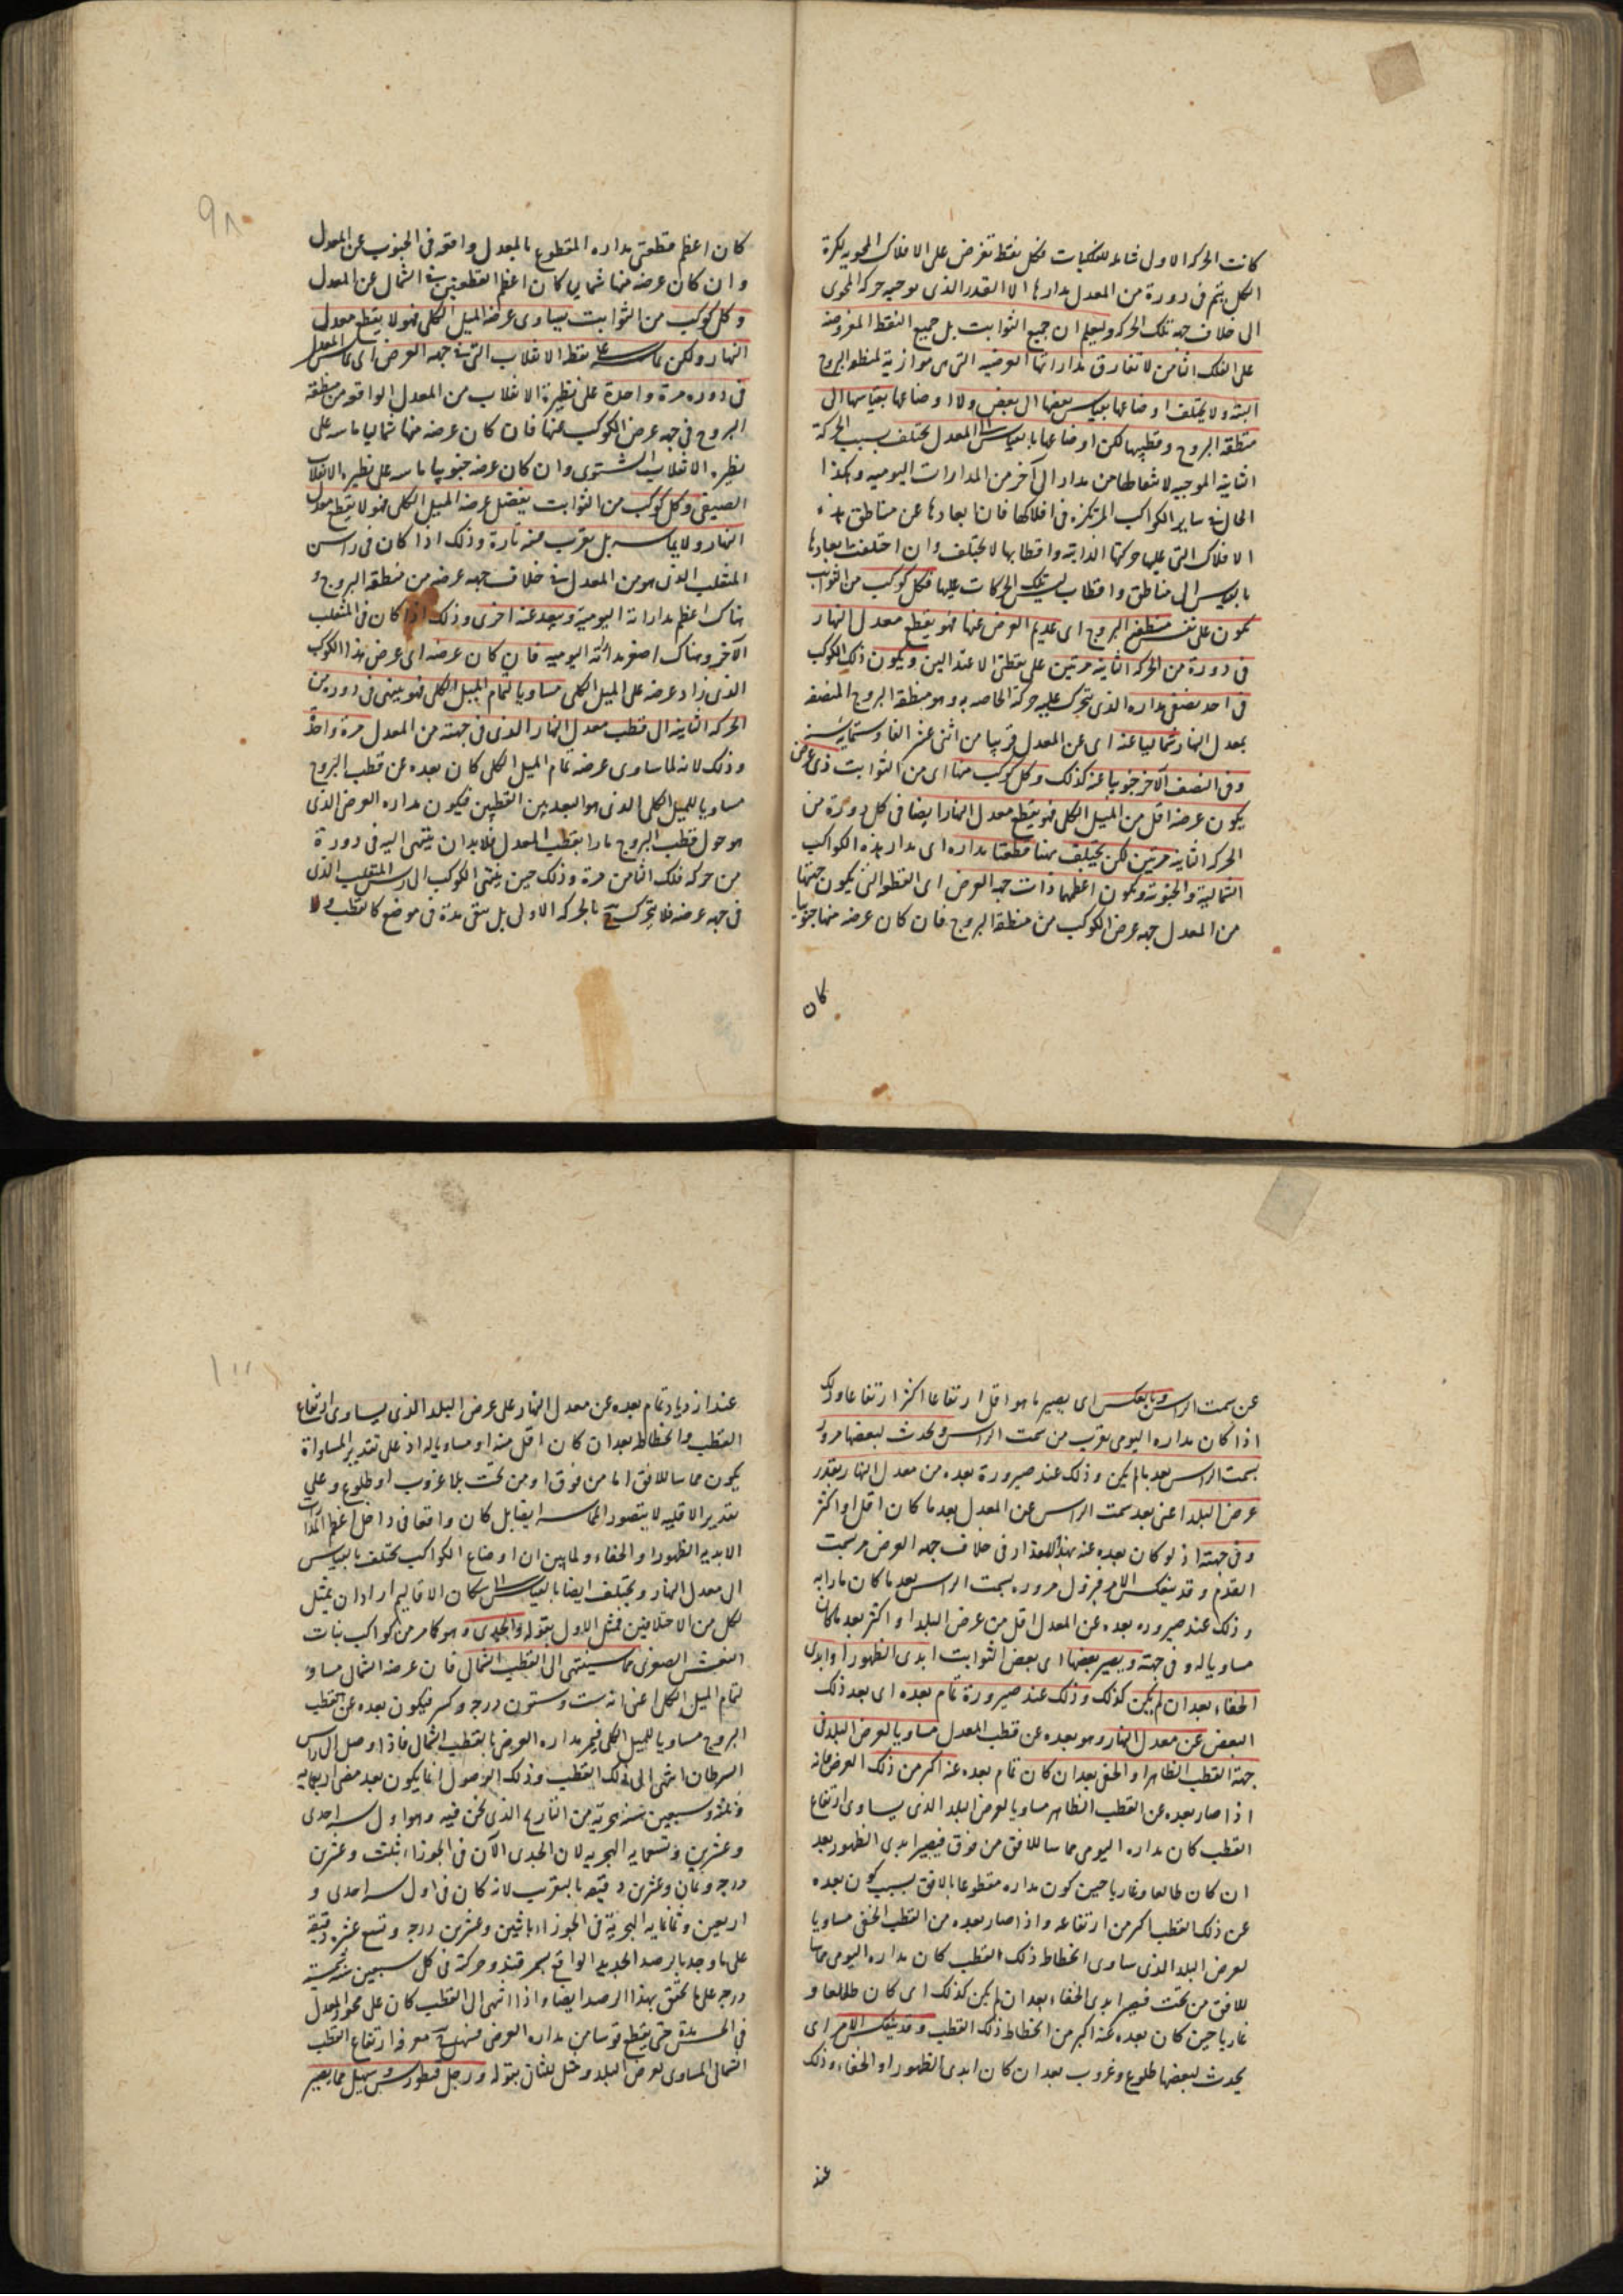 كانت الحركة الاولى شاملة للكليات فكل نقطة تفرض على الافلاك المحوية لكرة
الكل يتم فى دورة من المعدل مدارها الا القدر الذى توجبه حركة المحوى
الى خلاف جهة تلك الحركة وليعلم ان جميع الثوابت بل جميع النقط المفروضة
على الفلك الثامن لا تفارق مداراتها العرضية التى هى موازية لمنطقة البروج
البتة ولا يختلف اوضاعها بقياس بعضها الى بعض ولا اوضاعها بقياسها الى
منطقة البروج وقطبيها لكن اوضاعها بالقياس الى المعدل يختلف بسبب الحركة
الثانية الموجبة لانتقالها من مدار الى آخر من المدارات اليومية وهكذا
الحال فى ساير الكواكب المرتكزة فى افلاكها فان ابعادها عن مناطق هذه
الافلاك التى عليها حركتها الذاتية واقطابها لا يختلف وان اختلفت ابعادها
بالقياس الى مناطق واقطاب ليست تلك الحركات عليها فكل كوكب من الثوابت
يكون على نفس منطقة البروج اى عديم العرض عنها فهو يقطع معدل النهار
فى دورة من الحركة الثانية مرتين على نقطتى الاعتدالين ويكون ذلك الكوكب
فى احد نصفى مداره الذى يتحرك عليه حركته الخاصة به وهو منطقة البروج المنصفة
بمعدل النهار شماليا عنه اى عن المعدل قريبا من اثنى عشر الفا وستماية سنة
وفى النصف الآخر جنوبيا عنه كذلك وكل كوكب منها اى من الثوابت ذى عرض
يكون عرضه اقل من الميل الكلى فهو يقطع معدل النهار ايضا فى كل دورة من
الحركة الثانية مرتين لكن يختلف هنا قطعتا مداره اى مدار هذه الكواكب
الشمالية والجنوبية ويكون اعظمها ذات جهة العرض اى القطعة التى يكون جهتها
من المعدل جهة عرض الكوكب من منطقة البروج فان كان عرضه منها جنوبيا
كان
٩٨
كان اعظم قطعتى مداره المتقطوع بالمعدل واقعة فى الجنوب عن المعدل
وان كان عرضه منها شماليا كان اعظم القطعتين فى الشمال عن المعدل
وكل كوكب من الثوابت يساوى عرضه الميل الكلى فهو لا يقطع معدل
النهار ولكن يماسه على نقطة الانقلاب التى فى جهة العرض اى يماس المعدل
فى دوره مرة واحدة على نظيرة الانقلاب من المعدل الواقعة من منطقة
البروج فى جهة عرض الكوكب عنها فان كان عرضه منها شماليا ماسه على
نظيرة الانقلاب الشتوى وان كان عرضه جنوبيا ماسه على نظيرة الانقلاب
الصيفى وكل كوكب من الثوابت يفضل عرضه الميل الكلى فهو لا يقطع معدل
النهار ولا يماسه بل يقرب منه تارة وذلك اذا كان فى راس
المنقلب الذى هو من المعدل فى خلاف جهة عرضه من منطقة البروج و
هناك اعظم مداراته اليومية ويبعد عنه اخرى وذلك اذا كان فى المنقلب
الآخر وهناك اصغر مداراته اليومية فان كان عرضه اى عرض هذا الكوكب
الذى زاد عرضه على الميل الكلى مساويا لتمام الميل الكلى فهو ينتهى فى دورة من
الحركة الثانية الى قطب معدل النهار الذى فى جهته من المعدل مرة واحدة
وذلك لانه لما ساوى عرضه تمام الميل الكلى كان بعده عن قطب البروج
مساويا للميل الكلى الذى هو البعد بين القطبين فيكون مداره العرضى الذى
هو حول قطب البروج مارا بقطب المعدل فلا بد ان ينتهى اليه فى دورة
من حركة فلك الثامن مرة وذلك حين ينتهى الكوكب الى راس المنقلب الذى
فى جهة عرضه فلا يتحرك ح بالحركة الاولى بل يبقى مدة فى موضع كالقطب ولا
عن سمت الراس وبالعكس اى يصير ما هو اقل ارتفاعا اكثر ارتفاعا وذلك
اذا كان مداره اليومى يقرب من سمت الراس ويحدث لبعضها مرور
بسمت الراس بعد ما لم يكن وذلك عند صيرورة بعده من معدل النهار بقدر
عرض البلد اعنى بعد سمت الراس عن المعدل بعد ما كان اقل او اكثر
وفى جهته اذ لو كان بعده عنه بهذا المقدار فى خلاف جهة العرض مر بسمت
القدم وقد ينعكس الامر فيزول مروره بسمت الراس بعد ما كان مارا به
وذلك عند صيرورة بعده عن المعدل اقل من عرض البلد او اكثر بعد ما كان
مساويا له وفى جهته ويصير بعضها اى بعض الثوابت ابدى الظهور او ابدى
الخفاء بعد ان لم يكن كذلك وذلك عند صيرورة تمام بعده اى بعد ذلك
البعض عن معدل النهار وهو بعده عن قطب المعدل مساويا لعرض البلد فى
جهة القطب الظاهر او الخفى بعد ان كان تمام بعده عنه اكثر من ذلك العرض فانه
اذا صار بعده عن القطب الظاهر مساويا لعرض البلد الذى يساوى ارتفاع
القطب كان مداره اليومى مماسا للافق من فوق فيصير ابدى الظهور بعد
ان كان طالعا وغاربا حين كون مداره مقطوعا بالافق بسبب كون بعده
عن ذلك القطب اكثر من ارتفاعه واذا صار بعده من القطب الخفى مساويا
لعرض البلد الذى ساوى انحطاط ذلك القطب كان مداره اليومى مماسا
للافق من تحت فيصير ابدى الخفاء بعد ان لم يكن كذلك اى كان طالعا و
غاربا حين كان بعده عنه اكبر من انحطاط ذلك القطب وقد ينعكس الامر اى
يحدث لبعضها طلوع وغروب بعد ان كان ابدى الظهور او الخفاء وذلك
عند
عند ازدياد تمام بعده عن معدل النهار على عرض البلد الذى يساوى ارتفاع
القطب وانحطاطه بعد ان كان اقل منه او مساويا له اذ على تقدير المساواة
يكون مماسا للافق اما من فوق او من تحت بلا غروب او طلوع وعلى
تقدير الاقلية لا يتصور المماسة ايضا بل كان واقعا فى داخل اعظم المدارات
الابدية الظهور او الخفاء ولما بين ان اوضاع الكواكب تختلف بالقياس
الى معدل النهار ويختلف ايضا بالقياس الى سكان الاقاليم اراد ان يمثل
لكل من الاختلافين فمثل الاول بقوله والجدى وهو كما مر من كواكب بنات
النعش الصغرى مما سينتهى الى القطب الشمالى فان عرضه الشمالى مساو
لتمام الميل الكلى اعنى انه ست وستون درجة وكسر فيكون بعده عن قطب
البروج مساويا للميل الكلى فيمر مداره العرضى بالقطب الشمالى فاذا وصل الى راس
السرطان انتهى الى ذلك القطب وذلك الوصول انما يكون بعد مضى اربعماية
وثلثة وسبعين سنة هجرية من التاريخ الذى نحن فيه وهو اول سنة احدى
وعشرين وتسعماية الهجرية لان الجدى الآن فى الجوزاء بثلث وعشرين
درجة وثمان وعشرين دقيقة بالتقريب لانه كان فى اول سنة احدى و
اربعين وثمانماية الهجرية فى الجوزاء باثنين وعشرين درجة وتسع عشرة دقيقة
على ما وجد بالرصد الجديد الواقع بسمرقند وحركته فى كل سبعين سنة شمسية
درجة على ما تحقق بهذا الرصد ايضا واذا انتهى الى القطب كان على محور المعدل
فى الحس مدة حتى يقطع قوسا من مداره العرضى فيسهل ح معرفة ارتفاع القطب
الشمالى المساوى لعرض البلد ومثل للثانى بقوله ورجل قنطورس وسهيل مما يصير